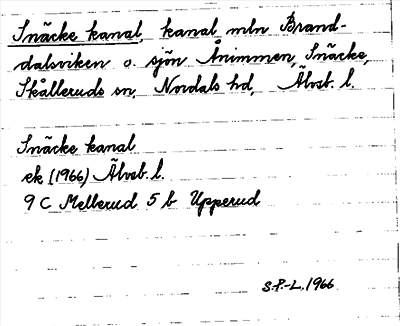 Snäcke kanal, kanal mln Brand-
dalsviken o. sjön Ånimmen, Snäcke,
Skålleruds sn, Nordals hd, Älvsb. l.
Snäcke kanal
ek (1966) Älvsb. l.
9 C Mellerud 5 b Upperud
S.P.-L. 1966